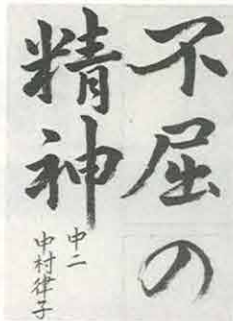 不屈の
精神
中二
中村律子